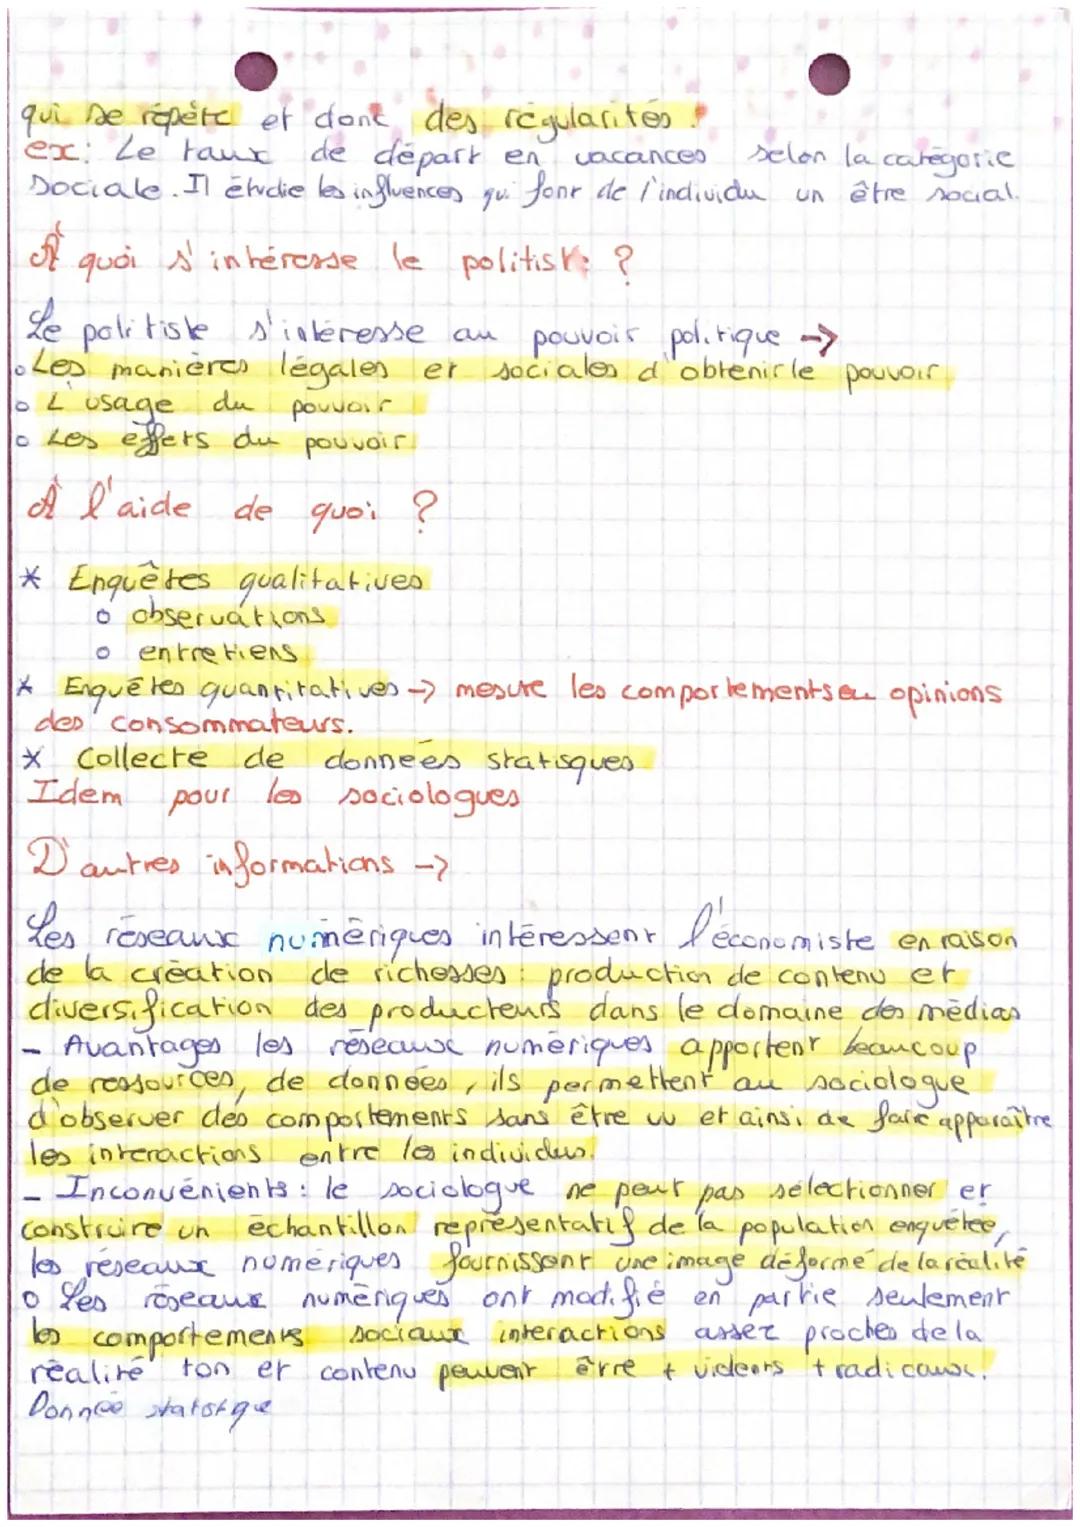 qui se répète et dont des régularités.
ex: Le taux de départ en vacances selon la catégorie
sociale. Il étudie les influences qui font de l'individu un être social.
À quoi s'intéresse le politiste ?
Le politiste s'intéresse au pouvoir politique ->
o Les manières légales et sociales d'obtenir le pouvoir
o L'usage du pouvoir
o Les effets du pouvoir
À l'aide de quoi ?
* Enquêtes qualitatives
o observations
o entretiens
* Enquêtes quantitatives -> mesure les comportements ou opinions
des consommateurs.
* Collecte de données statisques
Idem pour les sociologues
D'autres informations ->
Les réseaux numériques intéressent l'économiste en raison
de la création de richesses : production de contenu et
diversification des producteurs dans le domaine des médias
- Avantages les réseaux numériques apportent beaucoup
de ressources, de données, ils permettent au sociologue
d'observer des comportements sans être vu et ainsi de faire apparaître
les interactions entre les individus.
- Inconvénients : le sociologue ne peut pas sélectionner et
construire un échantillon représentatif de la population enquêtée,
les réseaux numériques fournissent une image déformé de la réalité
o Les réseaux numériques ont modifié en partie seulement
les comportements sociaux interactions assez proches de la
réalité ton et contenu peuvent être + videnrs + radicaux.
Donnée statistique